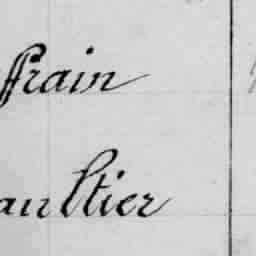 ffrain
aultier